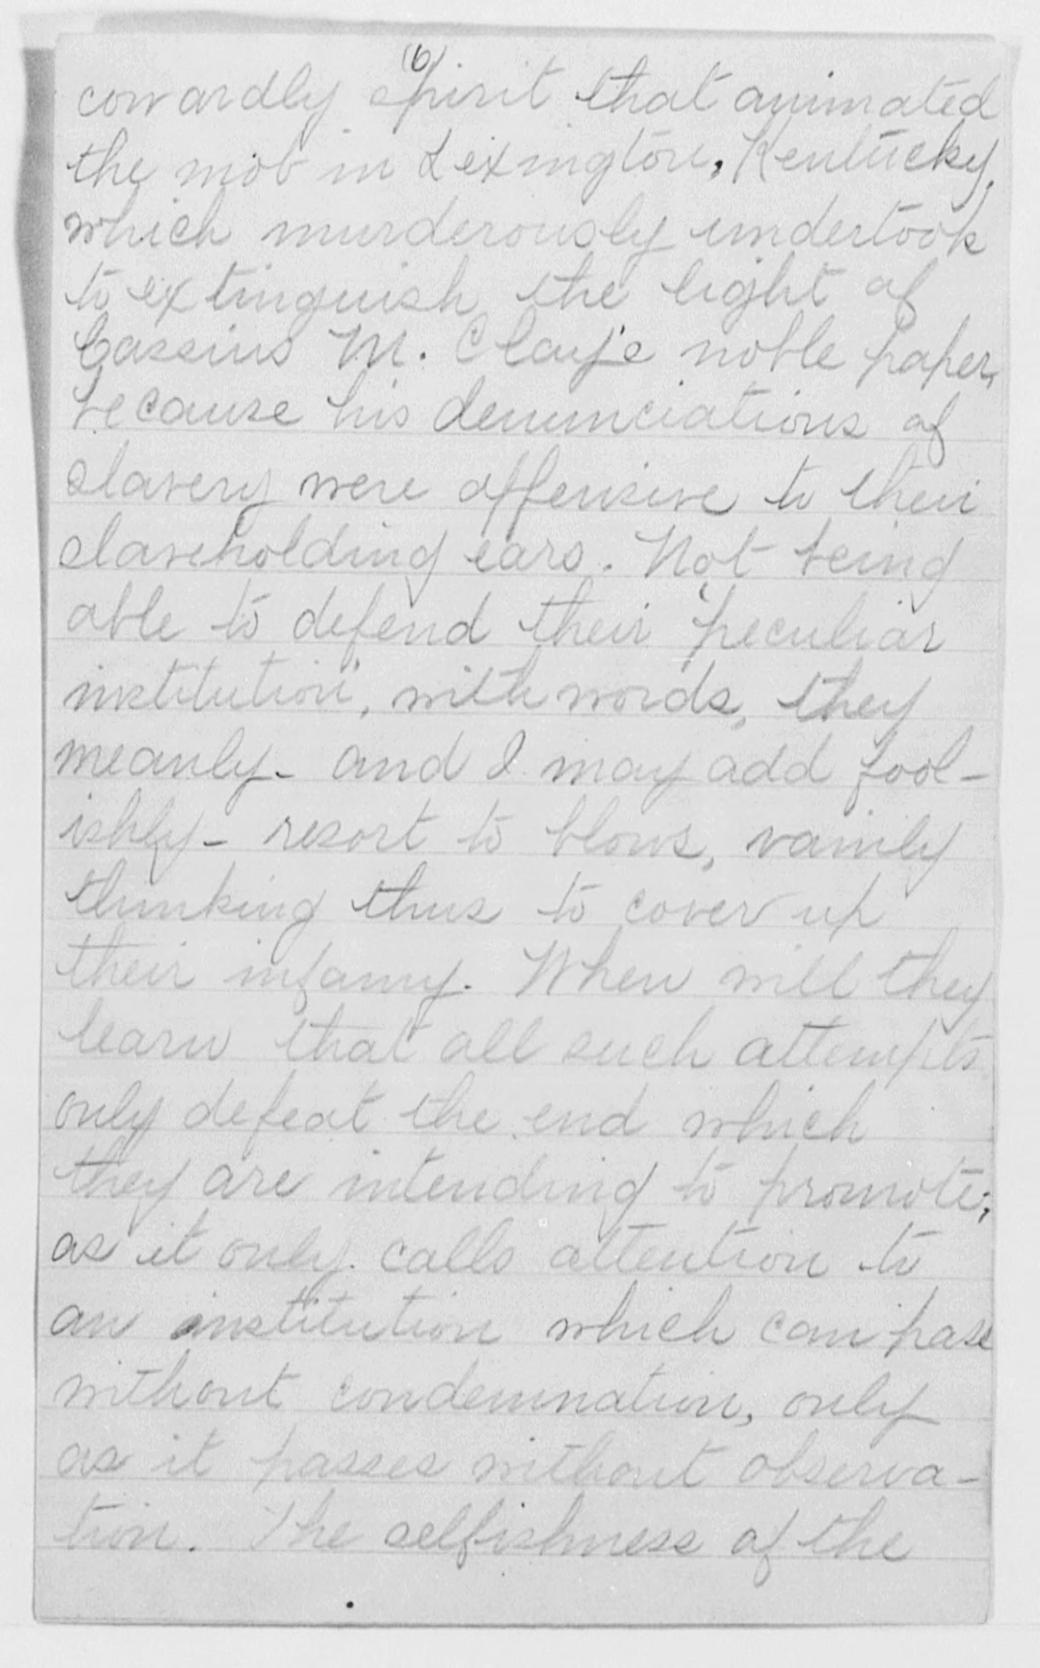 (6)
cowardly spirit that animated
the mob in Lexington, Kentucky,
which murderously undertook
to extinguish the light of
Cassius M. Clay's noble paper,
because his denunciations of
slavery were offensive to their
slaveholding ears. Not being
able to defend their "peculiar
institution", with words, they
meanly - and I may add fool-
ishly - resort to blows, vainly
thinking thus to cover up
their infamy. When will they
learn that all such attempts
only defeat the end which
they are intending to promote;
as it only calls attention to
an institution which can pass
without condemnation, only
as it passes without observa-
tion. The selfishness of the